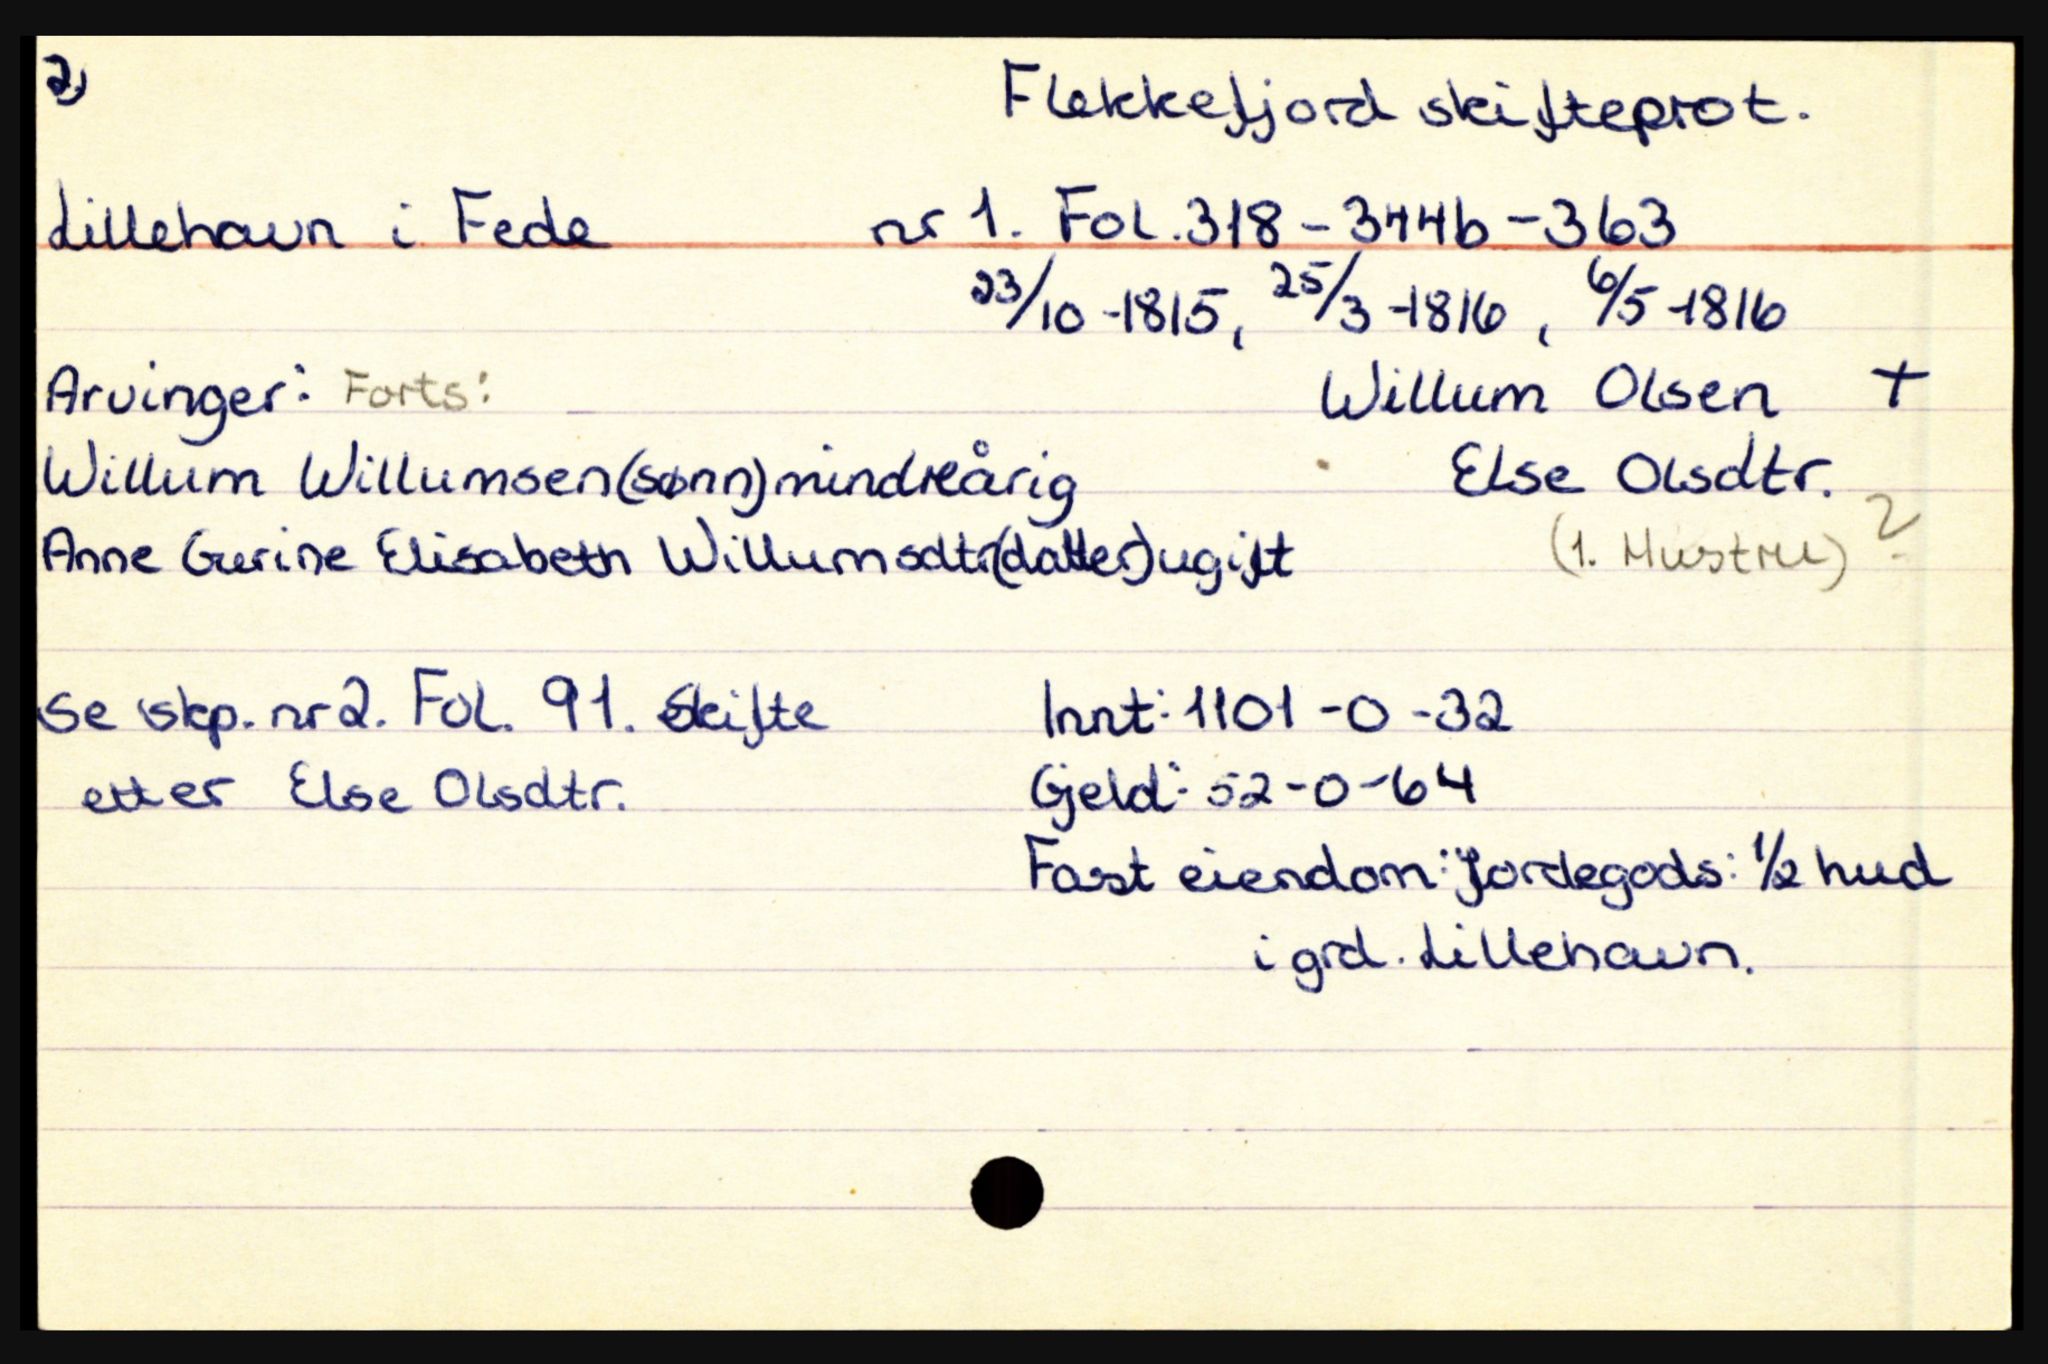 2)
Flekkefjord skifteprot.
Lillehavn i Fede nr 1. Fol. 318 - 344b - 363
23/10 -1815, 25/3 -1816, 6/5 -1816
Arvinger: Forts: Willum Olsen +
Willum Willumsen (sønn) mindreårig Else Olsdtr.
Anne Gurine Elisabeth Willumsdtr (datter) ugift (1. Hustru) ?
Se skp. nr 2. Fol. 91. Skifte Innt: 1101 - 0 - 32
etter Else Olsdtr. Gjeld: 52 - 0 - 64
Fast eiendom: Jordegods: 1/2 hud
i grd. Lillehavn.